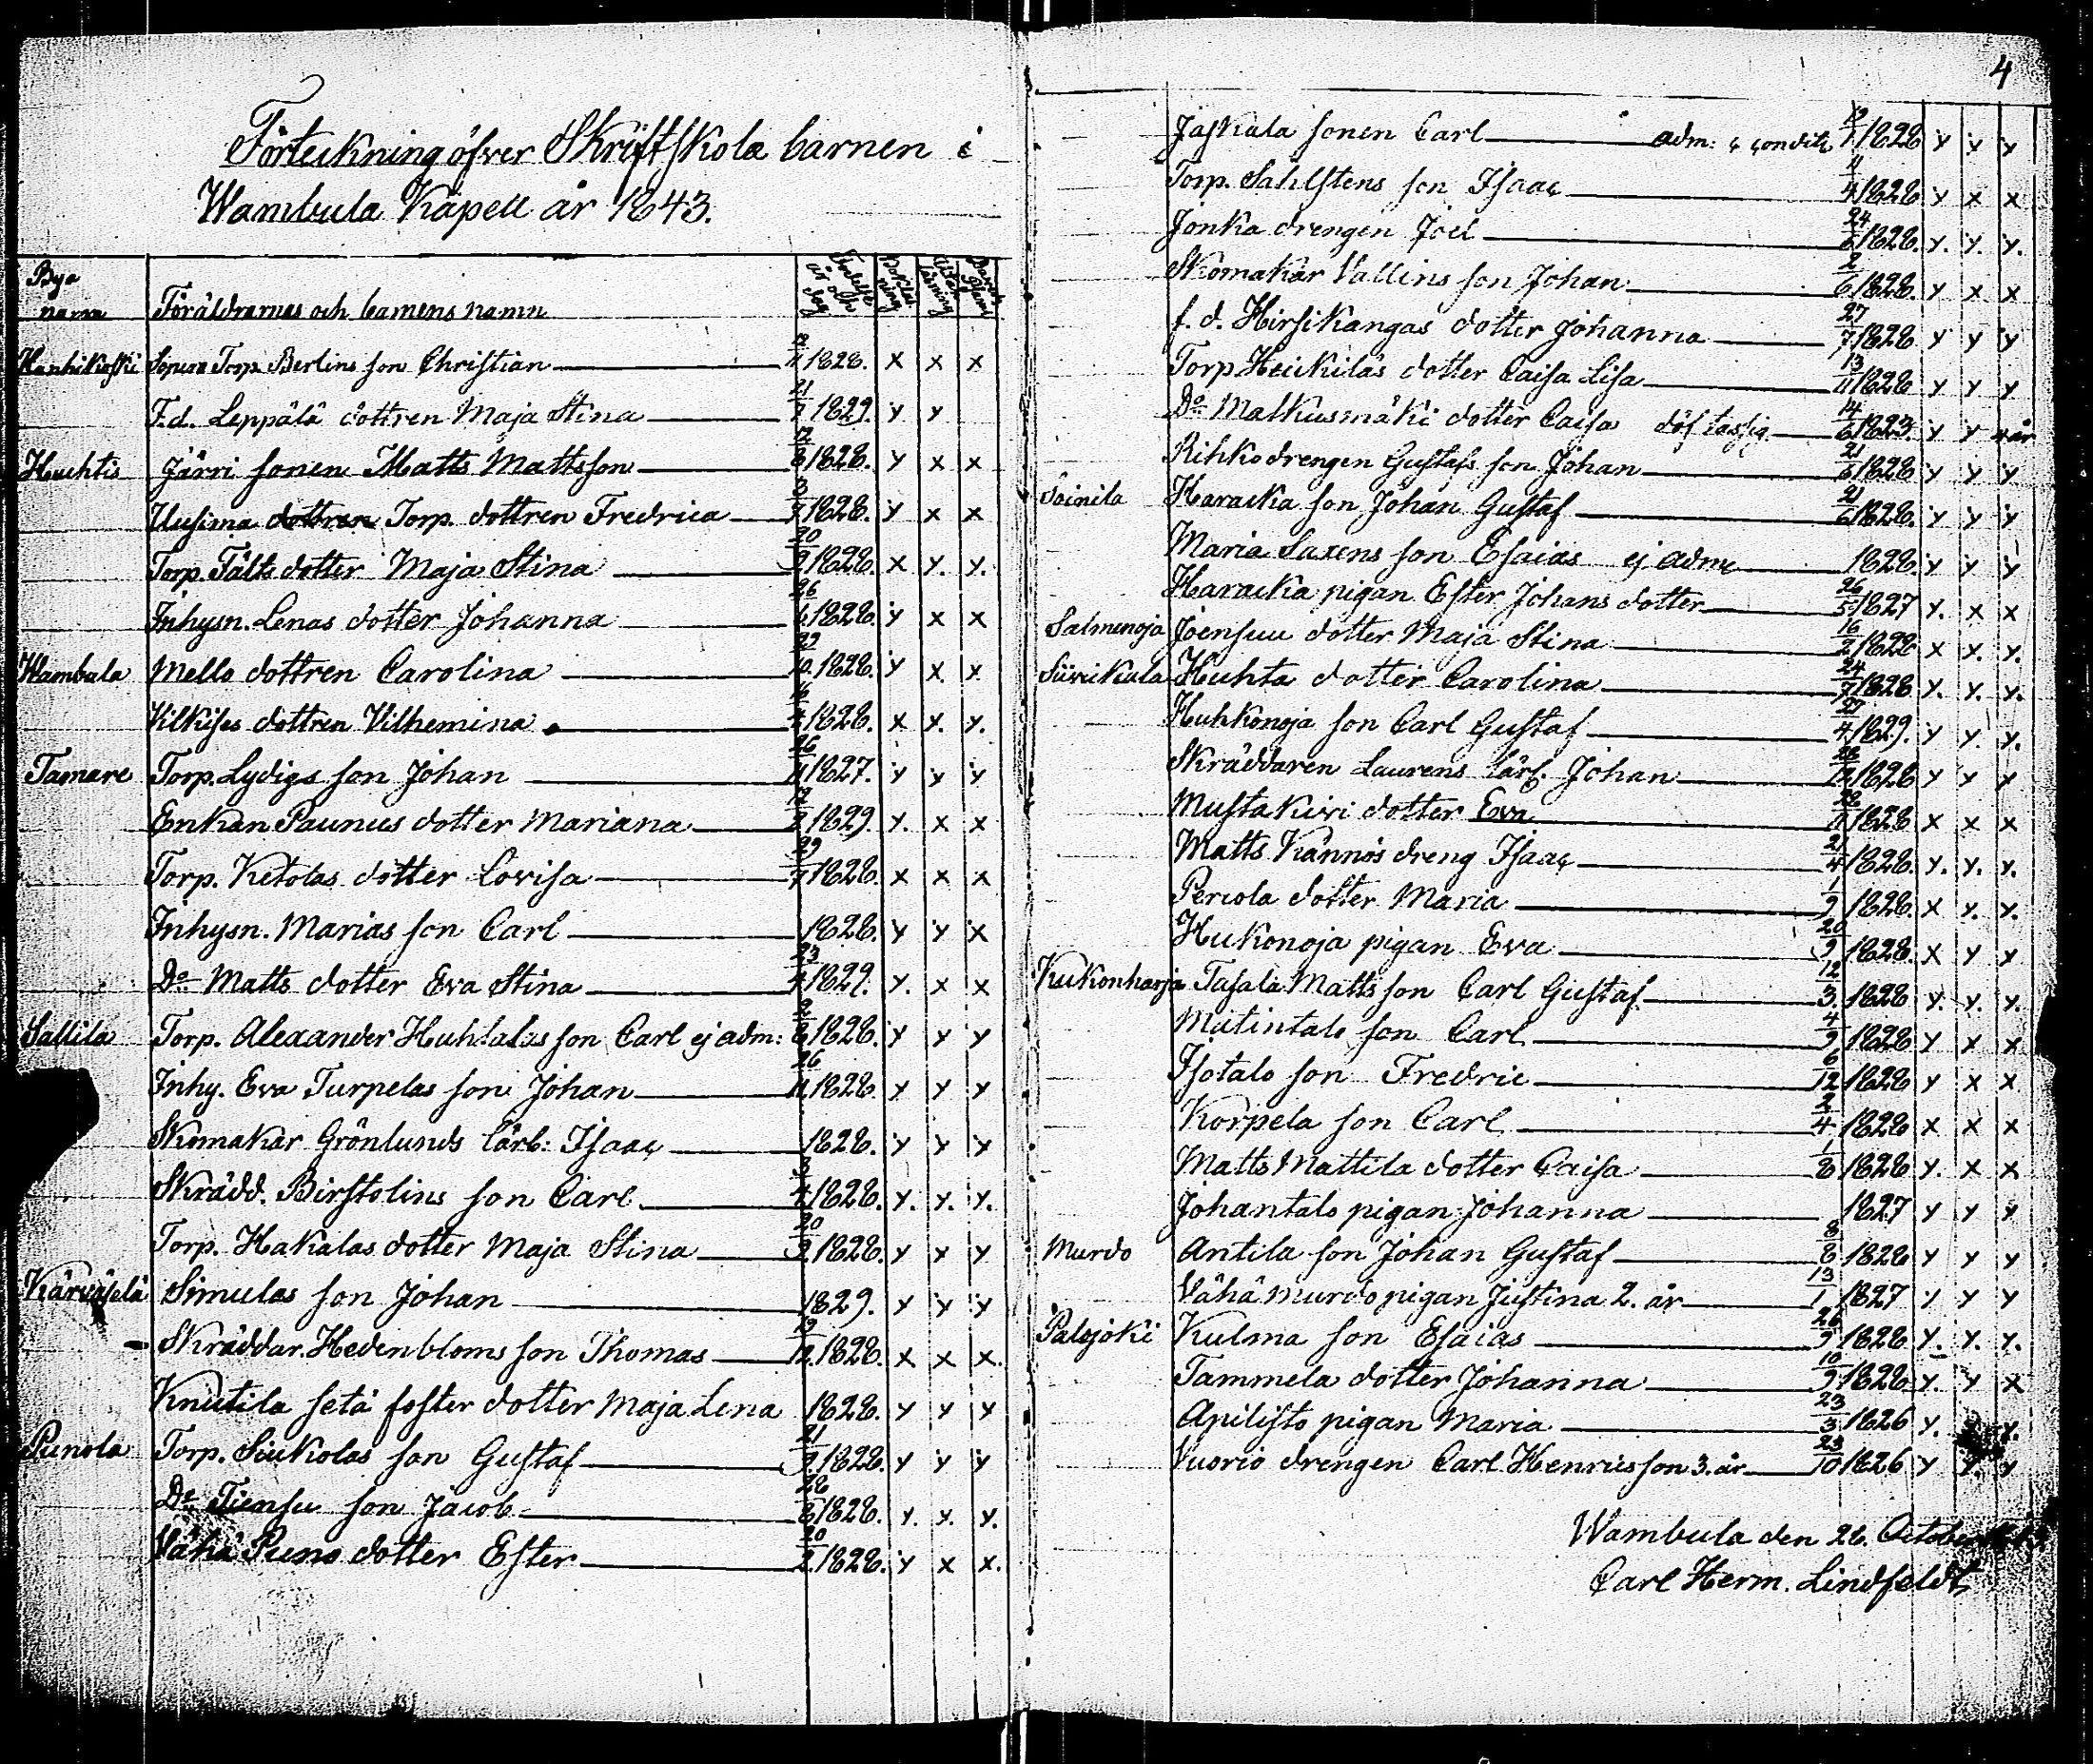 Förteckning öfver Skriftskola barnen i
Wambula Kapell år 1843.
Bya namn Föräldrarnas och barnens namn Födelse år och dag Bokläsning Utanläsning
Torp. Berlins son Christian 11 1828. x x x
F.d. Leppälä dottren Maja Stina 21 1829. y y
Huhtis Järri sonen Matts Mattsson 12/8 1828. y x x
Uusima dottren Torp. dottren Fredrica 1828. y x x
Torp. Fälts dotter Maja Stina 20/9 1828. x y. y.
Inhysn. Lenas dotter Johanna 26 1828. y x x
Wambula Mello dottren Carolina 10. 1828. y x x
Vilkises dottren Vilhemina 1828. x y. y.
Tamare Torp. Lydigs son Johan 26/11 1827. y y y
Enkan Paunus dotter Mariana 1829. y. x x
Torp. Ketolas dotter Lovisa 29/7 1828. x x x
Inhysn. Marias son Carl 1828. y y x
Do Matts dotter Eva Stina 23/4 1829. y. x x
Sallila Torp. Alexander Huhtalas son Carl ej adm: 1828. y y y
Inhy. Eva Turpelas son Johan 26/11 1828. y y y
Skomakar Grönlunds lärl: Isaac 1828. y y y
Skrädd. Birstolins son Carl 3/4 1828. y. y. y.
Torp. Hakalas dotter Maja Stina 20 1828. y y y
Kärväselä Simulas son Johan 1829. y y y
Skräddar. Hedenbloms son Thomas 19/12. 1828. x x x.
Knutila setä foster dotter Maja Lena 1828. y y y
Punola Torp. Siukolas son Gustaf 21 1828. y y y
Do Tiensu son Jacob 28/8 1828. y. y. y.
Vähä Puno dotter Ester 20/2. 1828. y x x.
4
Jaskala sonen Carl adm: 1828 y y y
Torp. Sahlstens son Isaac 4/4 1828 y x x
Jonka drengen Joel 24/6 1828. y. y. y.
Skomakar Vallins son Johan 2/6 1828. y x x
f. d. Hirsikangas dotter Johanna 27/7 1828 y y y
Torp Heickiläs dotter Caisa Lisa 13/11 1828 y y y
Do Malkusmäki dotter Caisa 14/6 1823. y y
Rihko drengen Gustafs son Johan 21/6 1828 y y y
Soinila Haracka son Johan Gustaf 21/6 1828. y y y
Maria Saxens son Esaias ej adm 1828. y y y
Haracka pigan Ester Johans dotter 26/5 1827 y. x x
Salmenoja Joensuu dotter Maja Stina 16/2 1828 x x. y.
Siivikala Huhta dotter Carolina 24/7 1828 y. y. y.
Huhkonoja son Carl Gustaf 27/4 1829. y y. y.
Skräddaren Laurens lärl. Johan 28/12 1828 y y y
Mustakivi dotter Eva 1828 x x x
Matts Kännös dreng Isaac 21/4 1828. y. y. y.
Periola dotter Maria 1/9 1828. x y. y.
Hukonoja pigan Eva 20/9 1828. x y y
Kukonharja Tasala Matts son Carl Gustaf 12/3. 1828 y. y. y.
Matintalo son Carl 4/9 1828 y x x
Isotalo son Fredric 6/12 1828 y x x
Korpela son Carl 2/4 1828 x x x
Matts Mattila dotter Caisa 1/8 1828 y. x x
Johantalo pigan Johanna 1827 y y y
Murdo Antila son Johan Gustaf 8/8 1828 y y y
Vähä Murdo pigan Justina 2. år 13/1 1827 y y y
Palojoki Kulma son Esaias 26/9 1828 y. y. y.
Tammela dotter Johanna 10/9 1828 y. y x
Apilisto pigan Maria 23/3 1826 y. y.
Vuorio drengen Carl Henricsson 3. år 23/10 1826 y y. y
Wambula den 28. October
Carl Herm. Lindfeldt